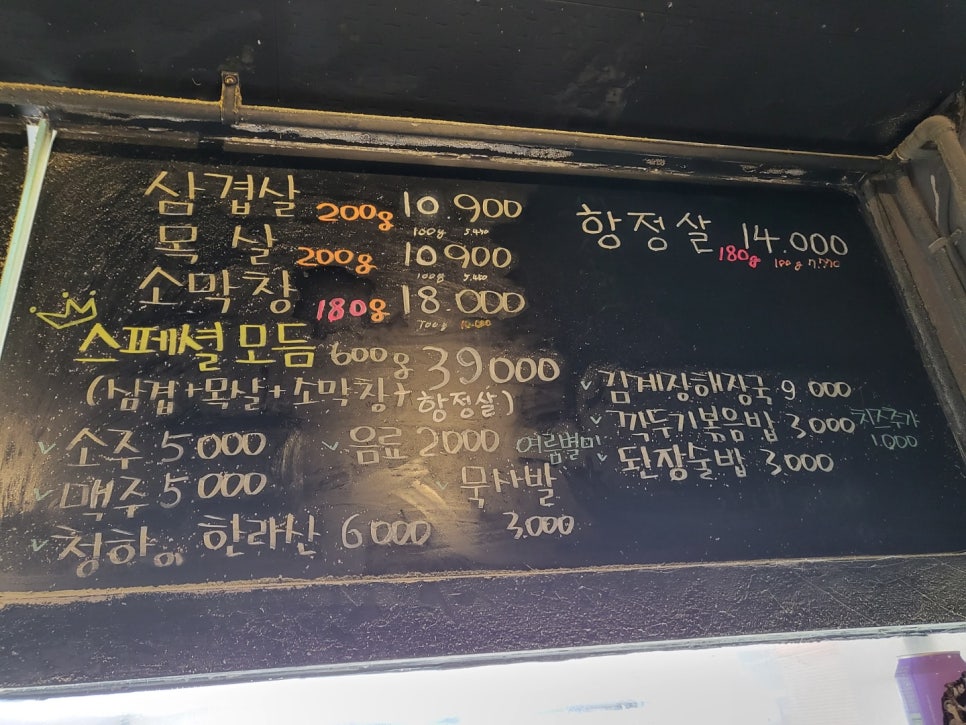 삼겹살 200g 10.900
100g 5.450
목살 200g 10900
100g 5.450
소막창 180g 18.000
100g 10.000
스페셜모듬 600g 39000
(삼겹+목살+소막창+항정살)
소주 5000
맥주 5000
청하. 한라산 6000
음료 2000
여름별미
묵사발
3.000
항정살 14.000
180g 100g
김계장해장국 9 000
깍두기볶음밥 3.000 치즈추가
1.000
된장술밥 3.000